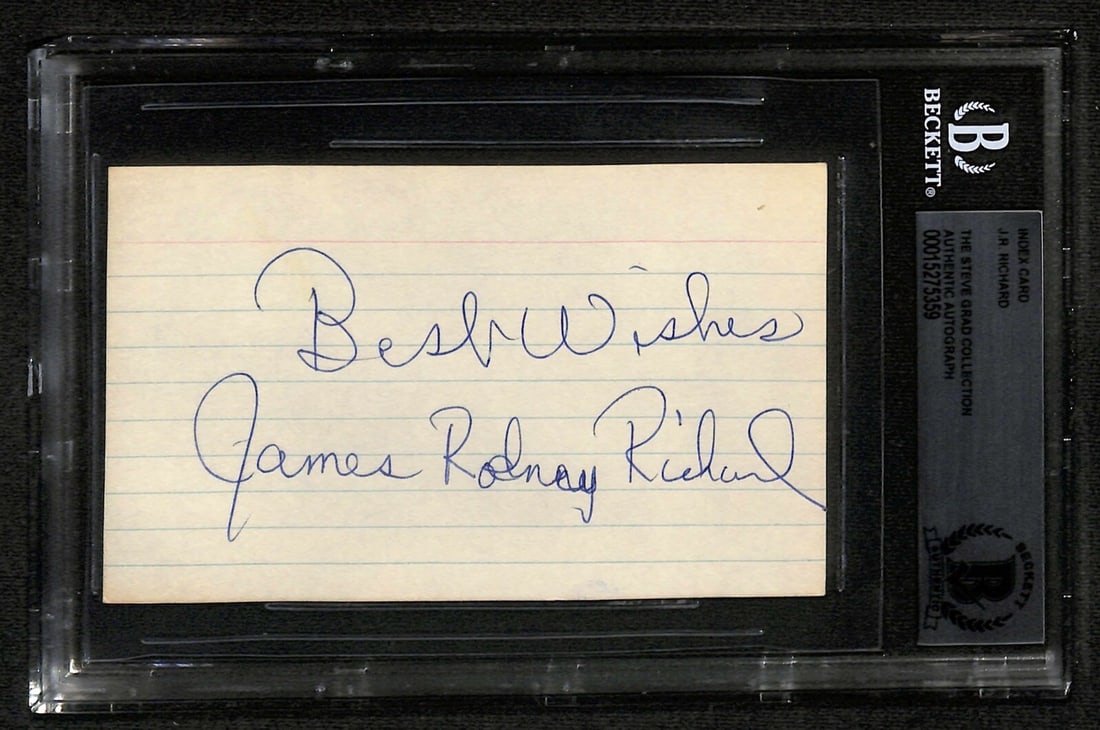 Best Wishes
James Rodney Richard
BECKETT®
B
INDEX CARD
J.R. RICHARD
THE STEVE GRAD COLLECTION
AUTHENTIC AUTOGRAPH
00015275359
BECKETT
B
AUTHENTIC